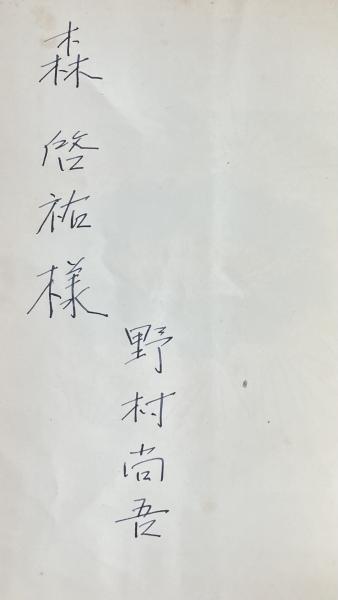 森啓祐様
野村尚吾